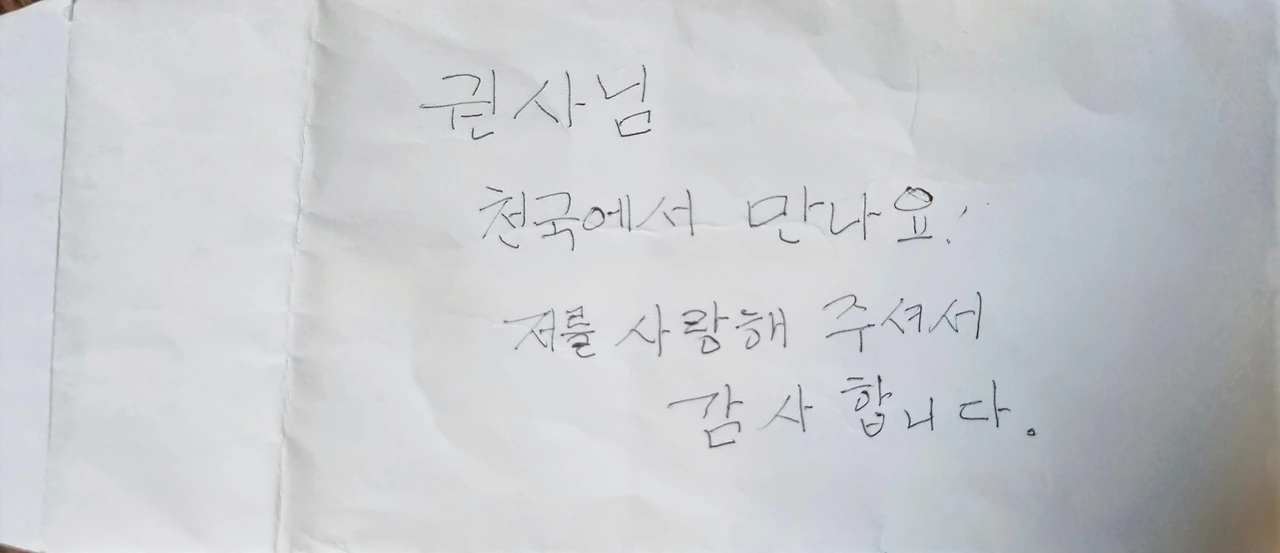 권사님
천국에서 만나요!
저를 사랑해 주셔서
감사합니다.